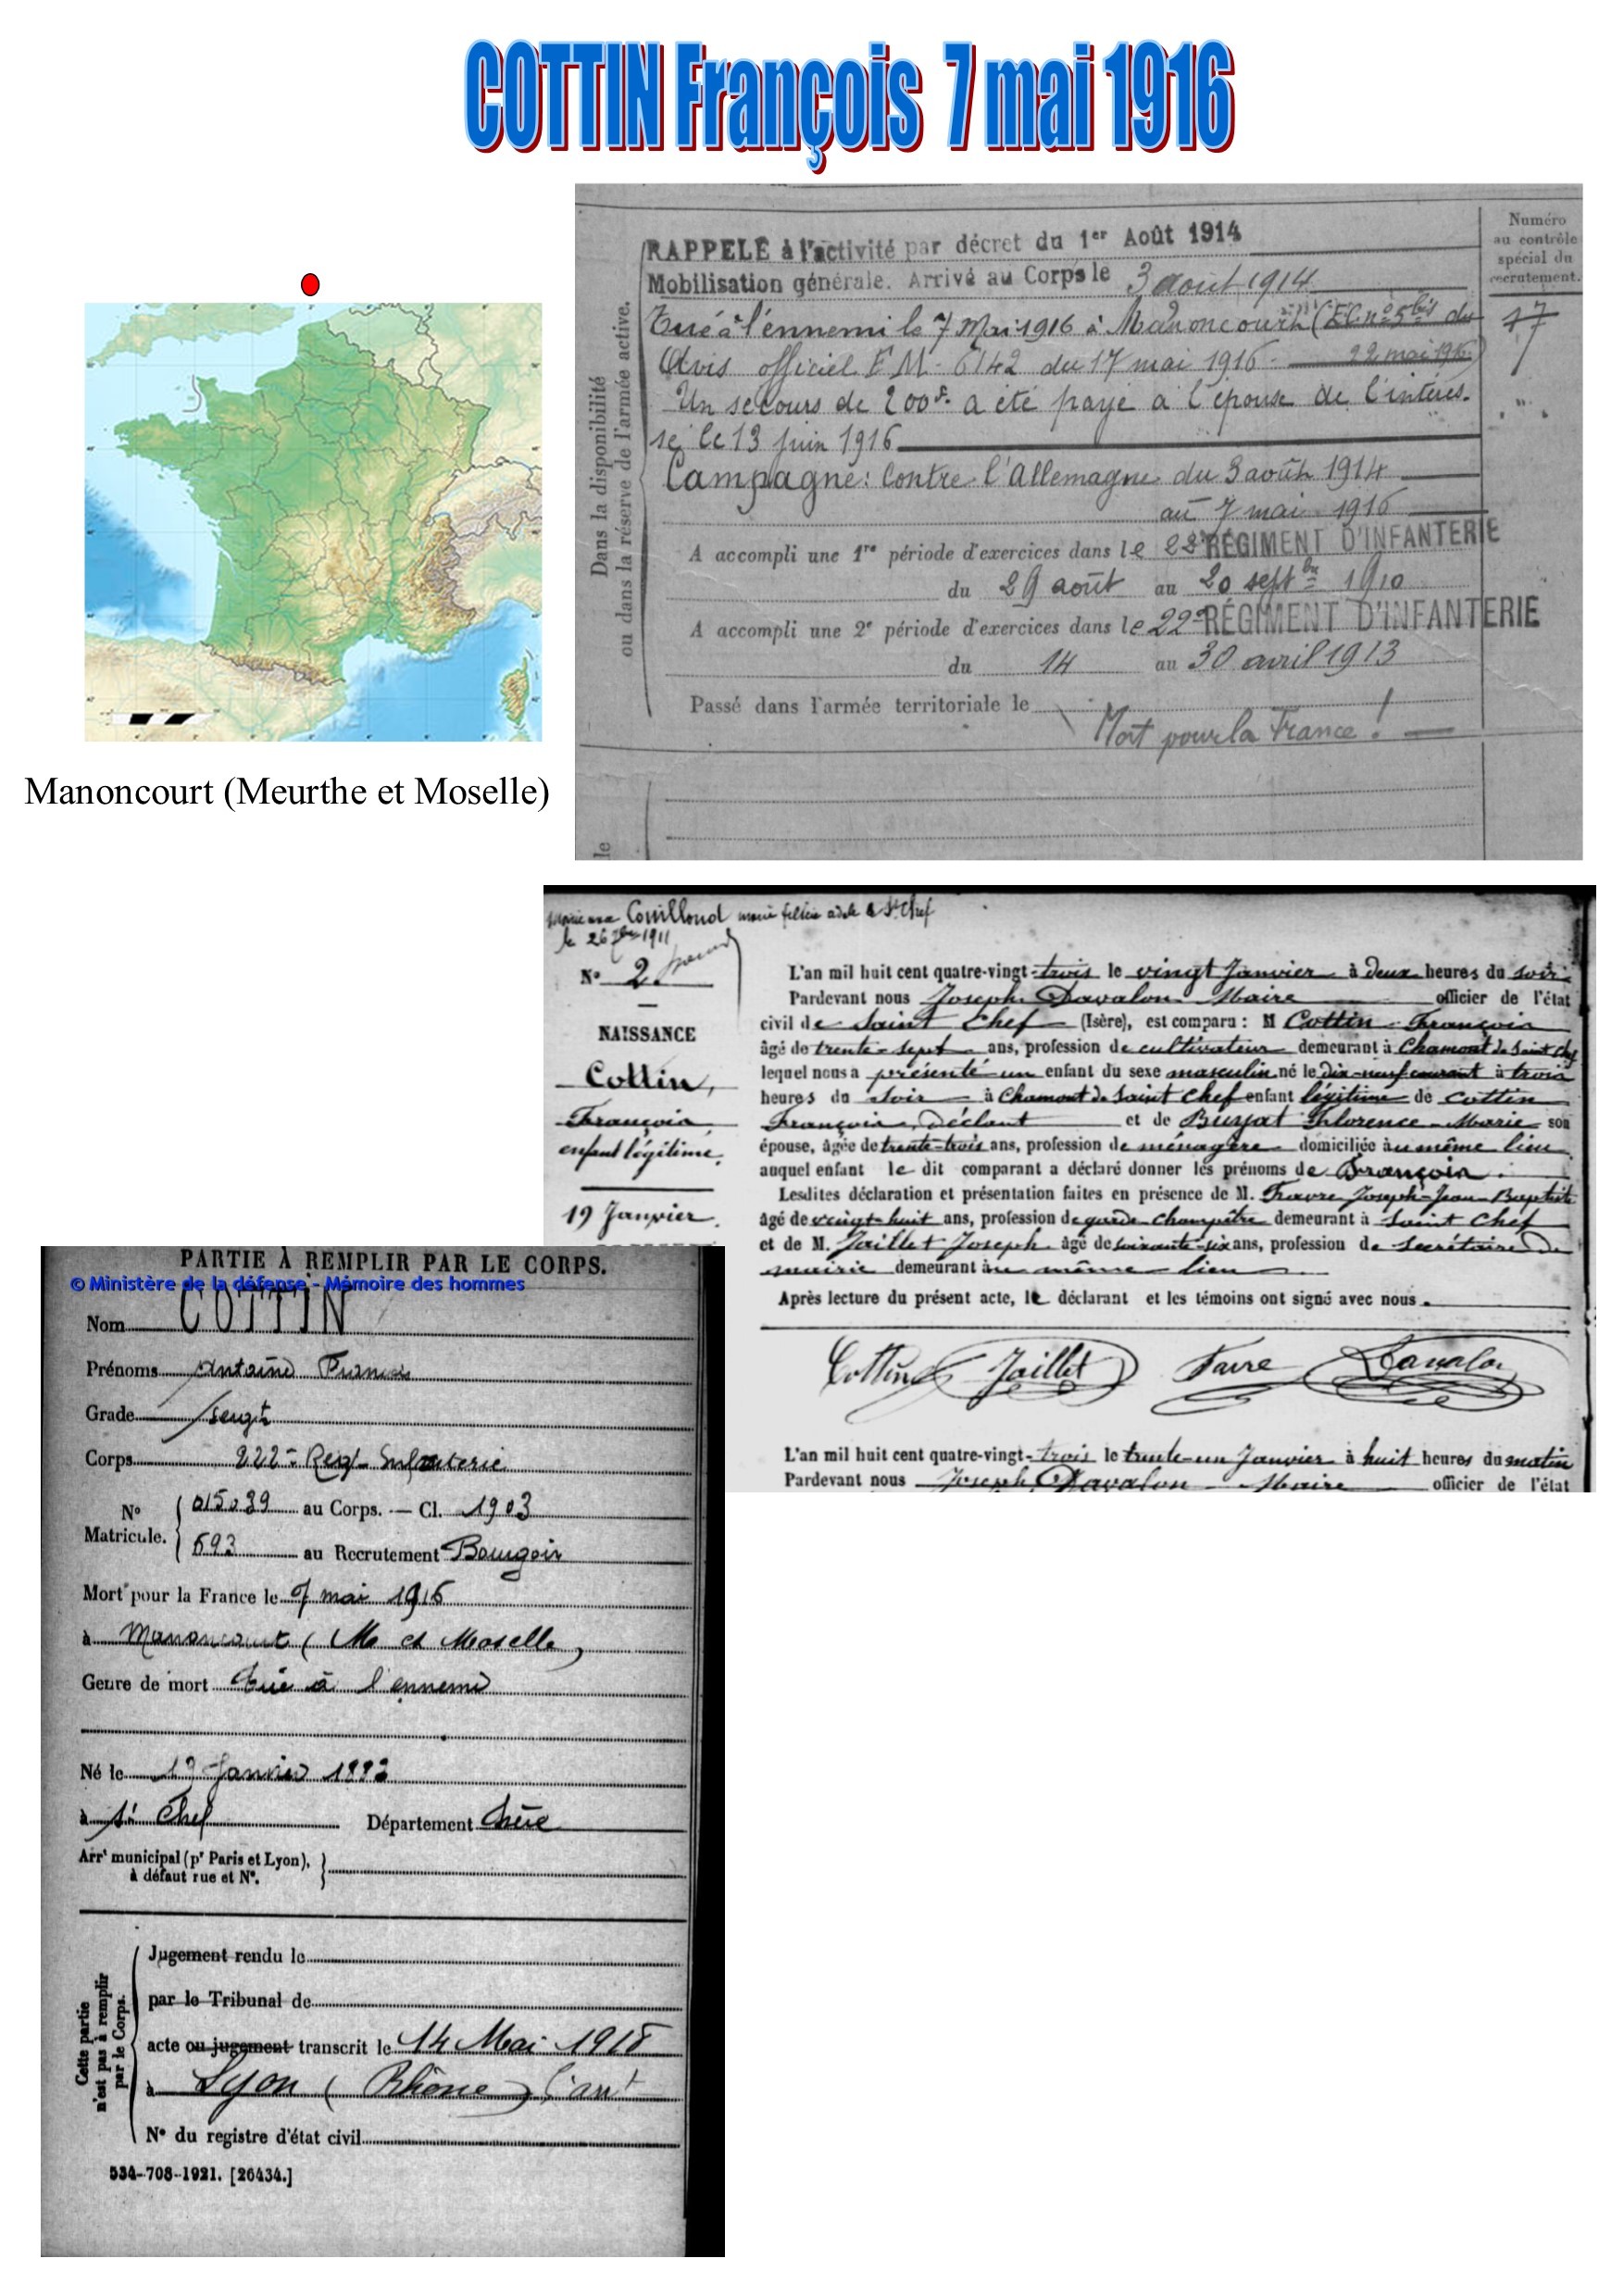 COTTIN François 7 mai 1916
Numéro
au contrôle
spécial du
recrutement.
17
Dans la disponibilité
ou dans la réserve de l'armée active.
RAPPELÉ à l'activité par décret du 1er Août 1914
Mobilisation générale. Arrivé au Corps le 3 août 1914
Tué à l'ennemi le 7 Mai 1916 à Manoncourt (E.C. n° 5 bis du
Avis officiel F M - 6142 du 17 mai 1916 - 22 mai 1916)
Un secours de 200f. a été payé à l'épouse de l'intéres-
sé le 13 juin 1916
Campagne: Contre l'Allemagne du 3 août 1914
au 7 mai 1916
A accompli une 1re période d'exercices dans le 28e RÉGIMENT D'INFANTERIE
du 29 août au 20 septbre 1910
A accompli une 2e période d'exercices dans le 22e RÉGIMENT D'INFANTERIE
du 14 au 30 avril 1913
Passé dans l'armée territoriale le
Mort pour la France !
le
Manoncourt (Meurthe et Moselle)
Couilloud marie à St Chef
le 26 1911
N° 2.
NAISSANCE
Cottin,
François
enfant légitime.
19 Janvier.
L'an mil huit cent quatre-vingt-trois le vingt Janvier à deux heures du soir
Pardevant nous Joseph Davalon Maire officier de l'état
civil de Saint Chef (Isère), est comparu : M Cottin François
âgé de trente-sept ans, profession de cultivateur demeurant à Chamont de Saint Chef
lequel nous a présenté un enfant du sexe masculin né le dix-neuf courant à trois
heures du soir à Chamont de Saint Chef enfant légitime de Cottin
François, déclant et de Buyat Florence Marie son
épouse, âgée de trente-trois ans, profession de ménagère domiciliée au même lieu
auquel enfant le dit comparant a déclaré donner les prénoms de François.
Lesdites déclaration et présentation faites en présence de M. Favre Joseph-Jean-Baptiste
âgé de vingt-huit ans, profession de garde champêtre demeurant à Saint Chef
et de M. Jaillet Joseph âgé de soixante-six ans, profession de secrétaire de
mairie demeurant au même lieu
Après lecture du présent acte, le déclarant et les témoins ont signé avec nous.
Cottin Jaillet Favre Davalon
L'an mil huit cent quatre-vingt-trois le trente-un Janvier à huit heures du matin
Pardevant nous Joseph Davalon Maire officier de l'état
PARTIE À REMPLIR PAR LE CORPS.
© Ministère de la défense - Mémoire des hommes
Nom COTTIN
Prénoms Antoine Francois
Grade Sergt
Corps 222e Regt Infanterie
N° Matricule. 015039 au Corps. — Cl. 1903
693 au Recrutement Bourgoin
Mort pour la France le 7 mai 1916
à Manoncourt (M et Moselle)
Genre de mort Tué à l'ennemi
Né le 19 Janvier 1883
à St Chef Département Isère
Arrt municipal (pr Paris et Lyon),
à défaut rue et N°.
Cette partie
n'est pas à remplir
par le Corps.
Jugement rendu le
par le Tribunal de
acte ou jugement transcrit le 14 Mai 1918
à Lyon (Rhône)
N° du registre d'état civil
534-708-1921. [26434.]